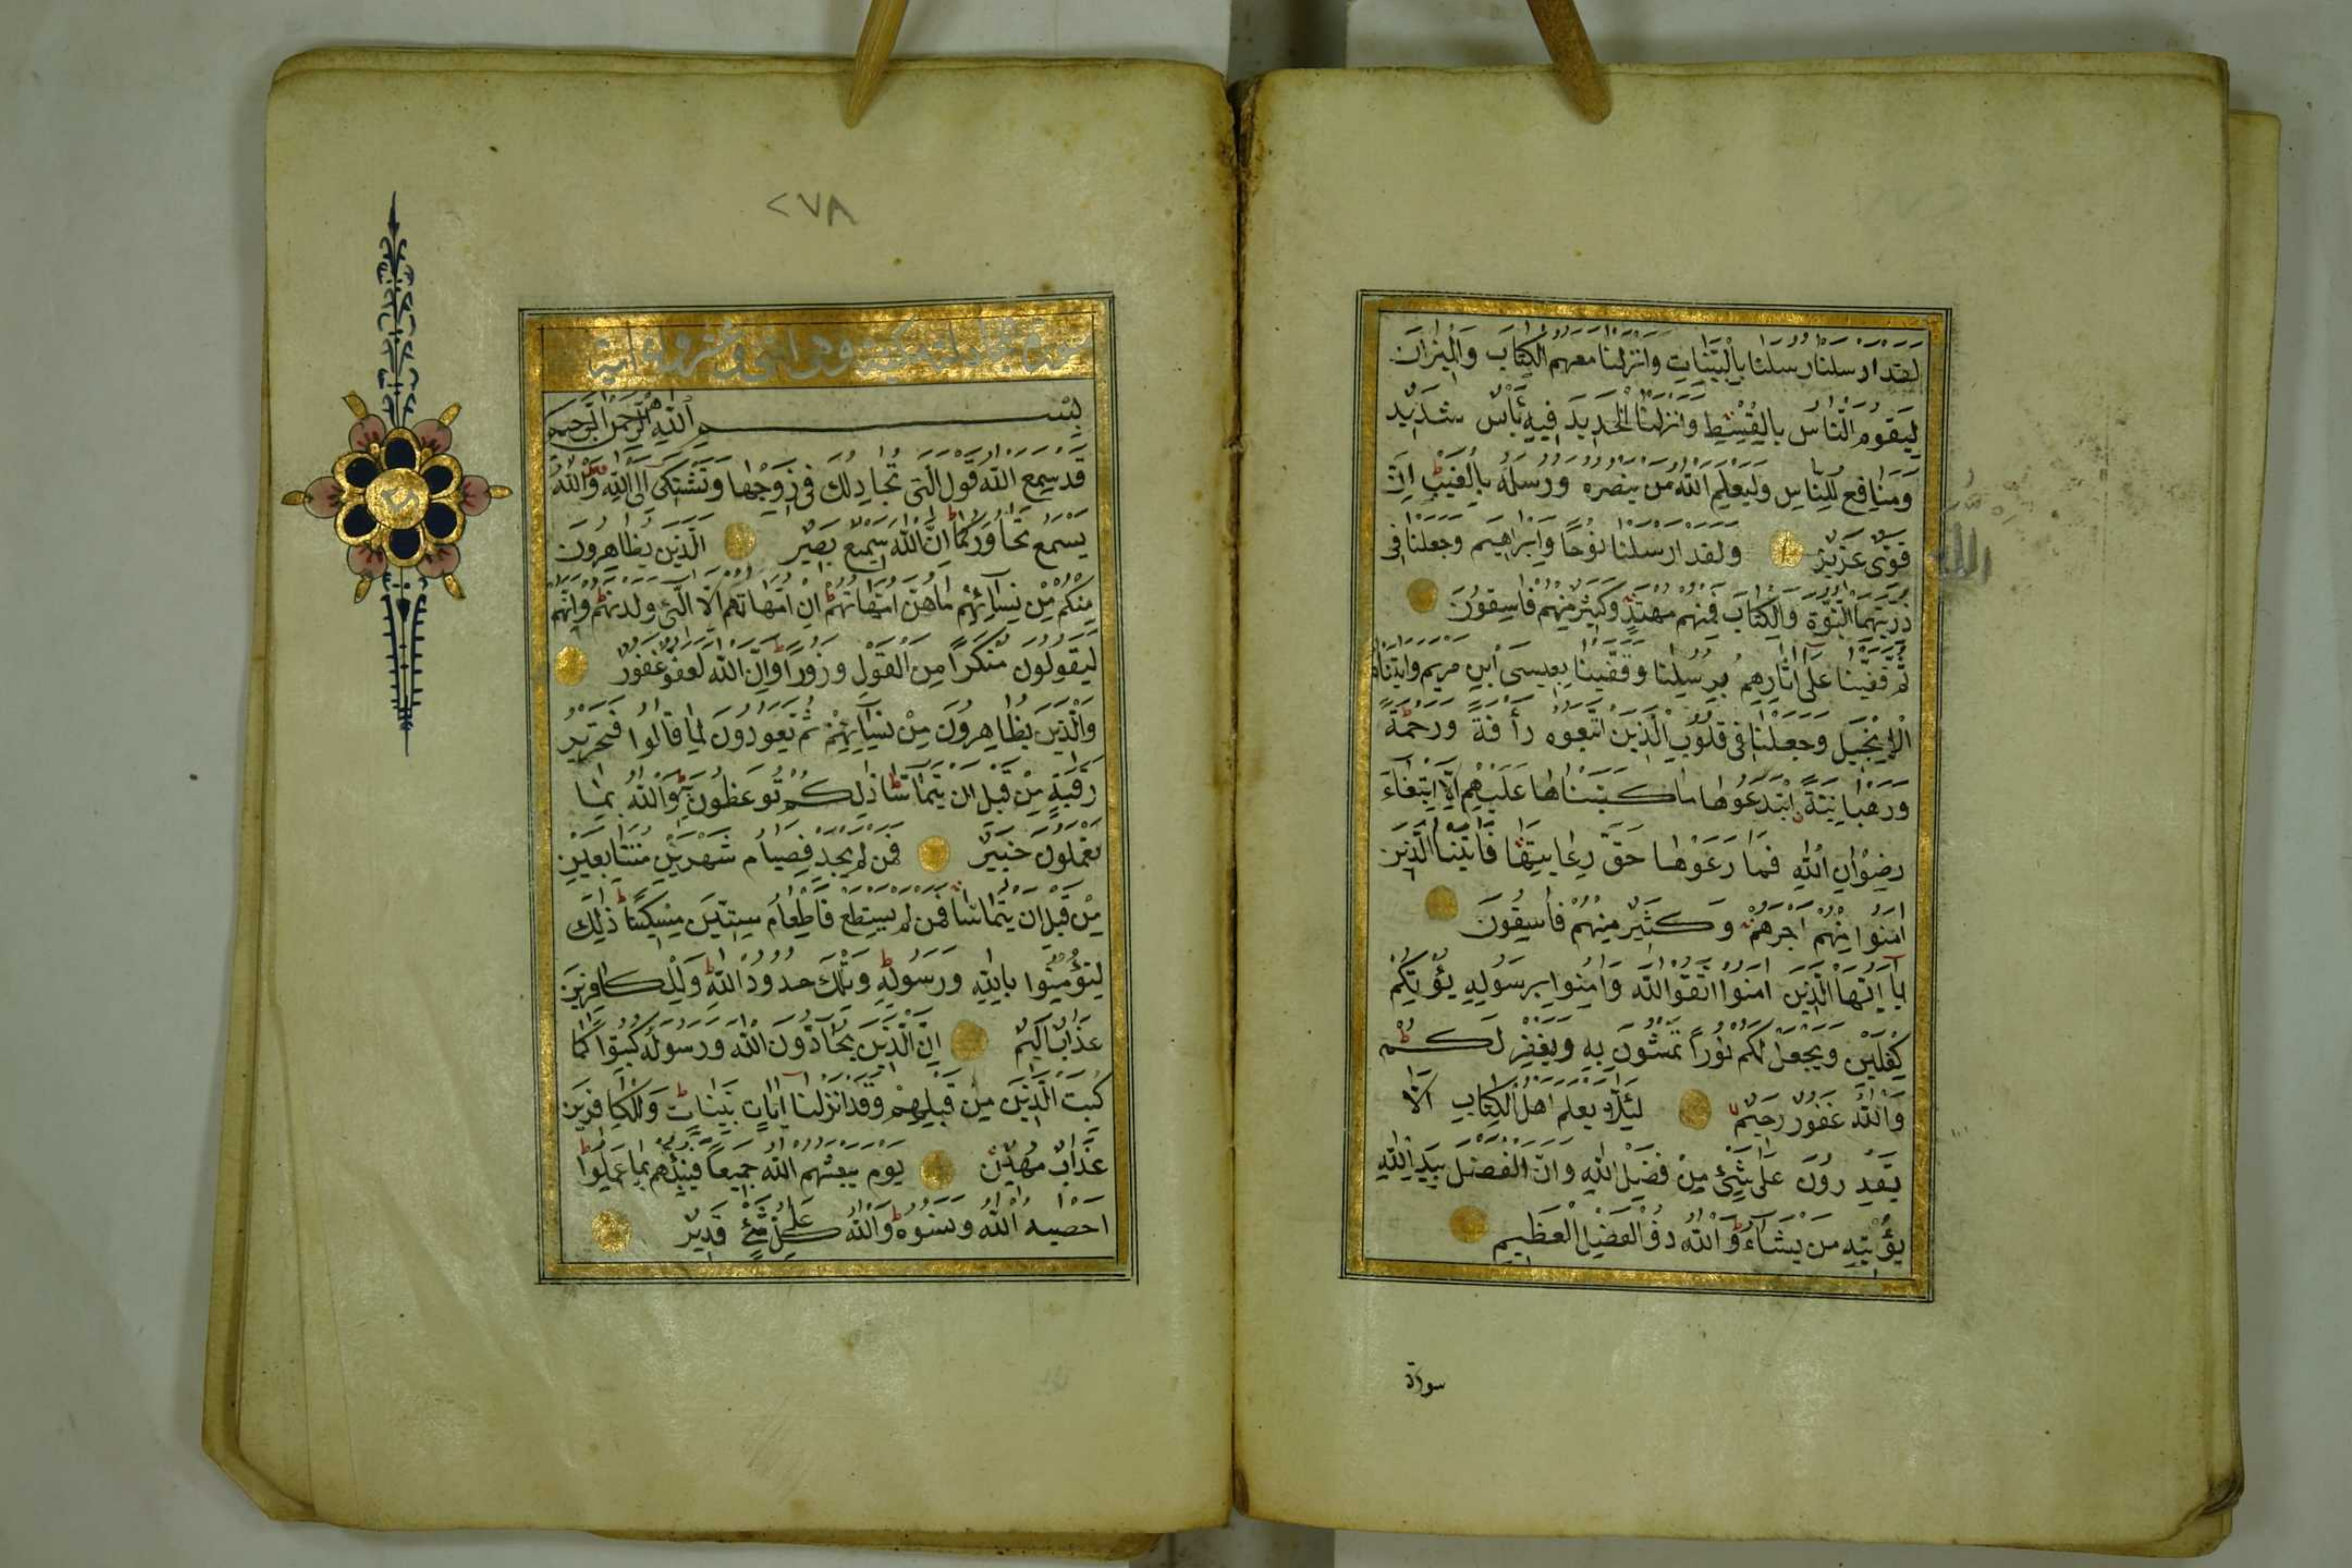 لقد ارسلنا رسلنا بالبينات وانزلنا معهم الكتاب والميزان
ليقوم الناس بالقسط وانزلنا الحديد فيه بأس شديد
ومنافع للناس وليعلم الله من ينصره ورسله بالغيب ان
قوى عزيز ولقد ارسلنا نوحا وابراهيم وجعلنا فى
ذريتهما النبوة والكتاب فمنهم مهتد وكثير منهم فاسقون
ثم قفينا على اثارهم برسلنا وقفينا بعيسى ابن مريم واتيناه
الانجيل وجعلنا فى قلوب الذين اتبعوه رأفة ورحمة
ورهبانية ابتدعوها ما كتبناها عليهم الا ابتغاء
رضوان الله فما رعوها حق رعايتها فاتينا الذين
امنوا منهم اجرهم وكثير منهم فاسقون
يا ايها الذين امنوا اتقوا الله وامنوا برسوله يؤتكم
كفلين ويجعل لكم نورا تمشون به ويغفر لكم
والله غفور رحيم لئلا يعلم اهل الكتاب الا
يقدرون على شئ من فضل الله وان الفضل بيد الله
يؤتيه من يشاء والله ذو الفضل العظيم
سورة
٢٧٨
بسم الله الرحمن الرحيم
قد سمع الله قول التى تجادلك فى زوجها وتشتكى الى الله والله
يسمع تحاوركما ان الله سميع بصير الذين يظاهرون
منكم من نسائهم ما هن امهاتهم ان امهاتهم الا الئ ولدنهم وانهم
ليقولون منكرا من القول وزورا وان الله لعفو غفور
والذين يظاهرون من نسائهم ثم يعودون لما قالوا فتحرير
رقبة من قبل ان يتماسا ذلكم توعظون به والله بما
تعملون خبير فمن لم يجد فصيام شهرين متتابعين
من قبل ان يتماسا فمن لم يستطع فاطعام ستين مسكينا ذلك
لتؤمنوا بالله ورسوله وتلك حدود الله وللكافرين
عذاب اليم ان الذين يحادون الله ورسوله كبتوا كما
كبت الذين من قبلهم وقد انزلنا ايات بينات وللكافرين
عذاب مهين يوم يبعثهم الله جميعا فينبئهم بما عملوا
احصيه الله ونسوه والله على كل شئ قدير